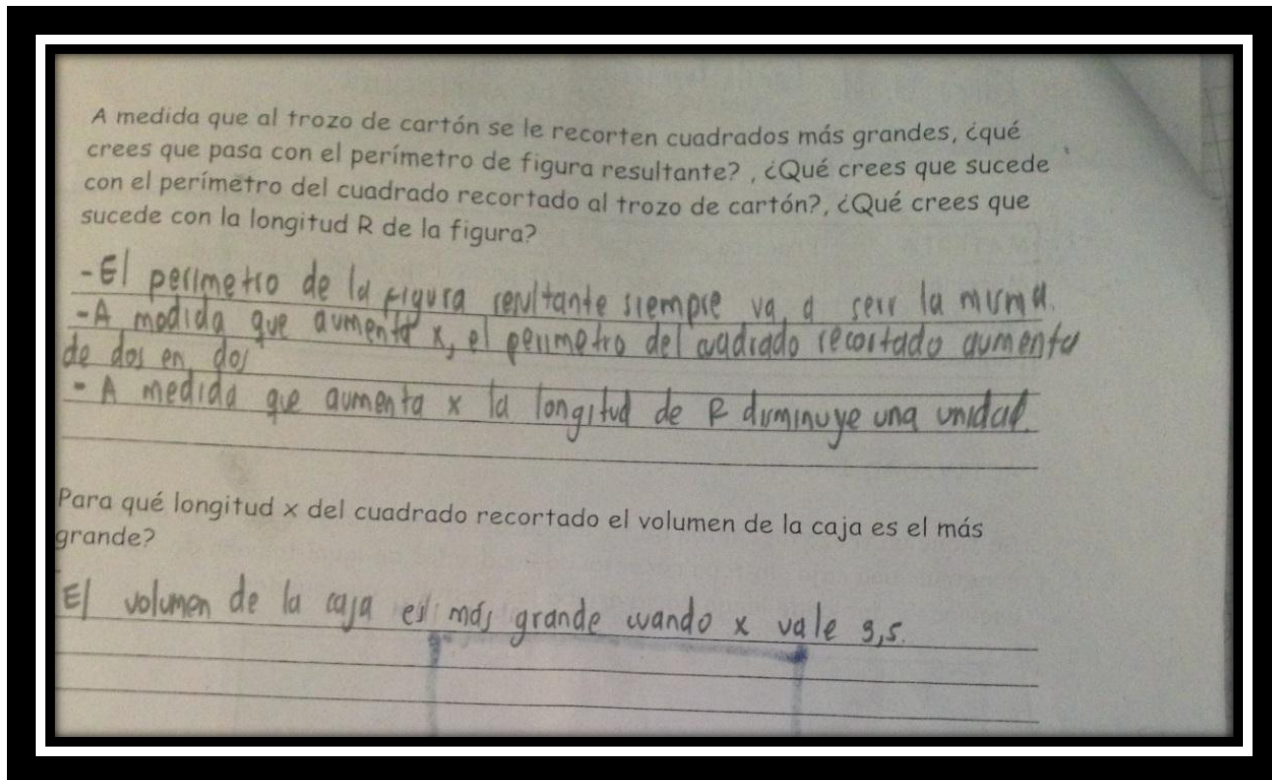 A medida que al trozo de cartón se le recorten cuadrados más grandes, ¿qué
crees que pasa con el perímetro de figura resultante? , ¿Qué crees que sucede
con el perímetro del cuadrado recortado al trozo de cartón?, ¿Qué crees que
sucede con la longitud R de la figura?
-El perimetro de la figura resultante siempre va a ser la misma.
-A medida que aumenta x, el perimetro del cuadrado recortado aumenta
de dos en dos
- A medida que aumenta x la longitud de R disminuye una unidad.
Para qué longitud x del cuadrado recortado el volumen de la caja es el más
grande?
El volumen de la caja es más grande cuando x vale 3,5.